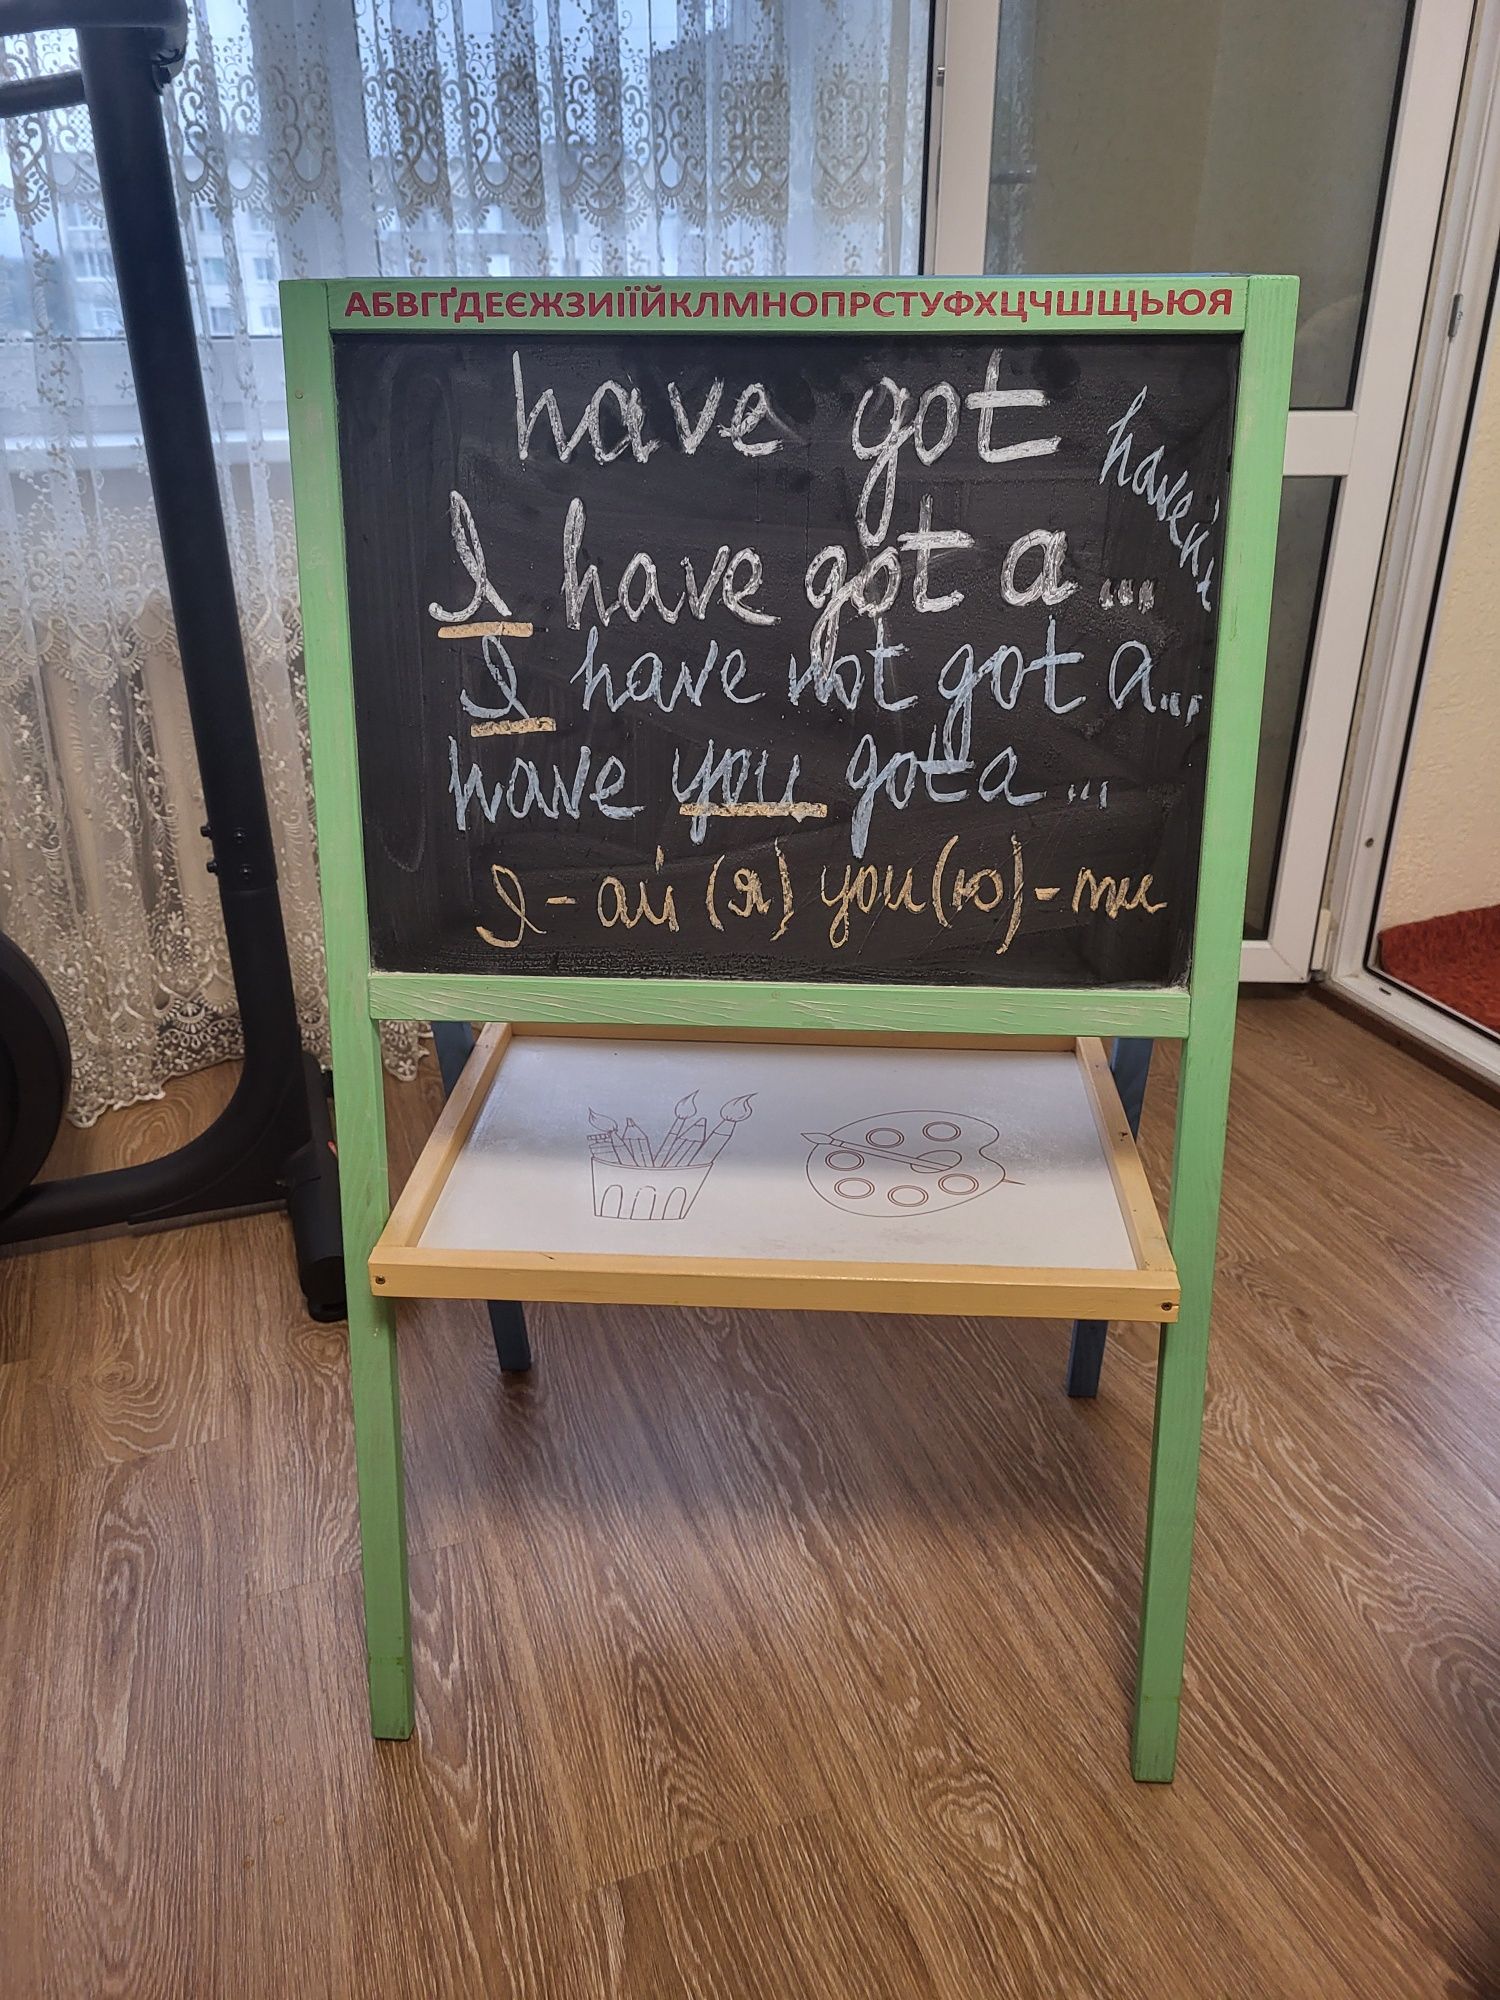 АБВГҐДЕЄЖЗИІЇЙКЛМНОПРСТУФХЦЧШЩЬЮЯ
have got
I have got a ...
I have not got a ...
have you got a ...
I - ай (я) you (ю) - ти